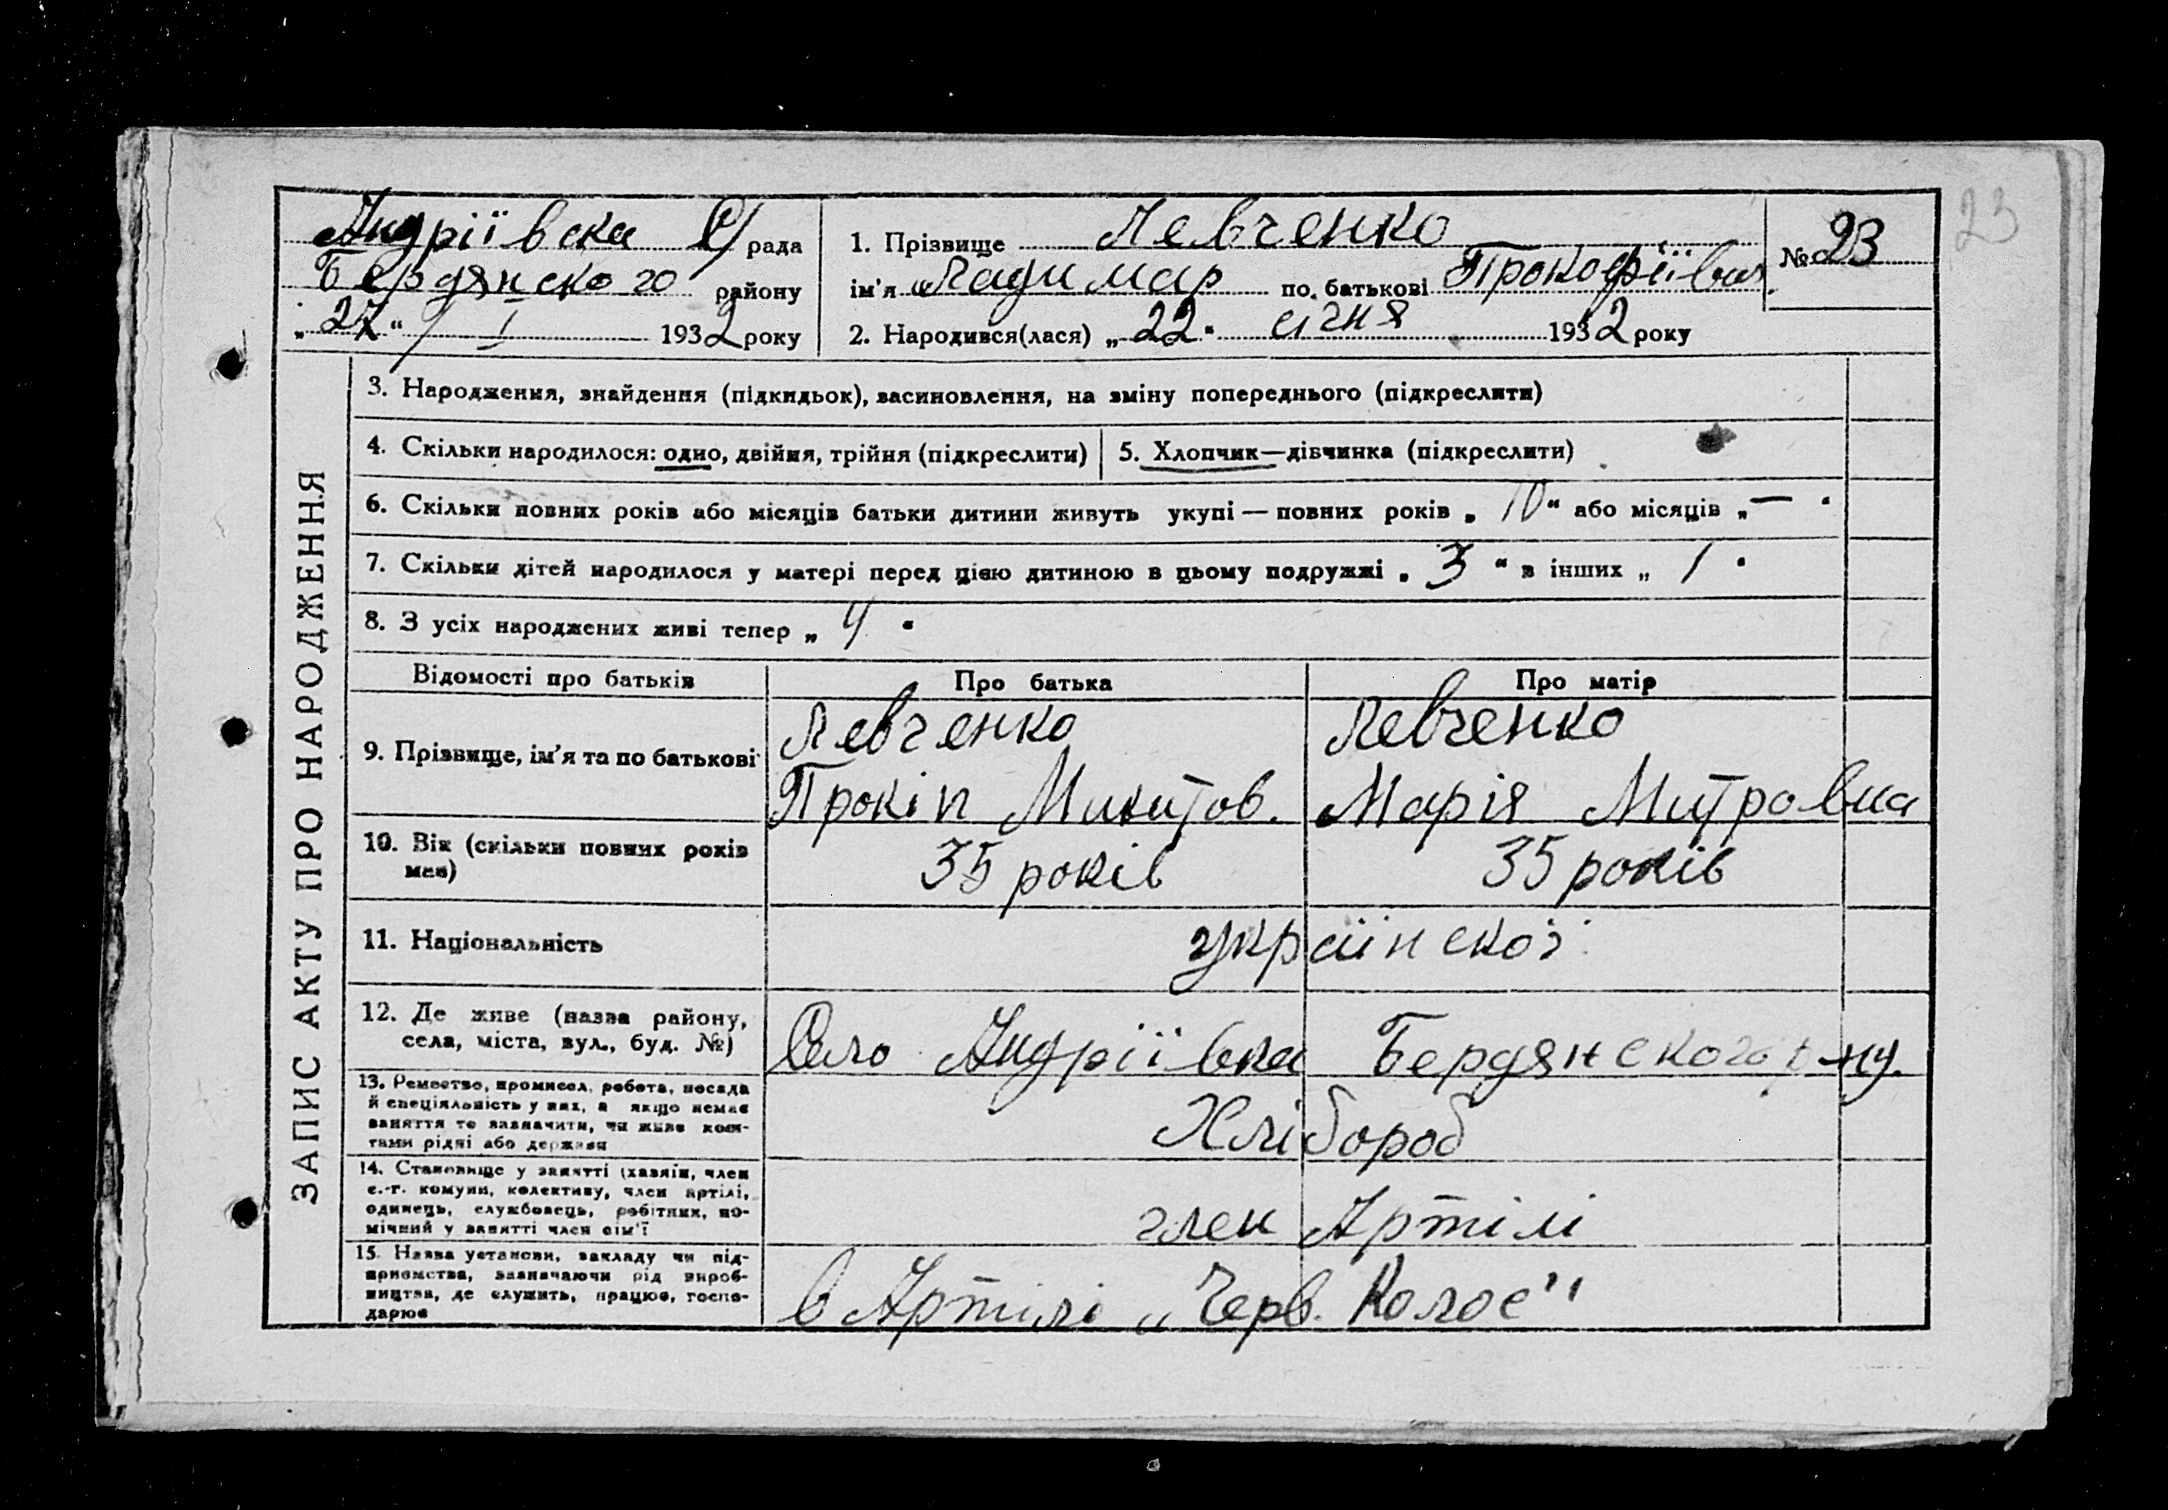 Андріївска С/рада
Бердянского району
„27“ / I 1932 року
1. Прізвище Левченко
ім'я Ладимар по батькові Прокофіївич
№ 23
23
2. Народився(лася) „22“ січня 1932 року
ЗАПИС АКТУ ПРО НАРОДЖЕННЯ
3. Народження, знайдення (підкидьок), засиновлення, на зміну попереднього (підкреслити)
4. Скільки народилося: одно, двійня, трійня (підкреслити)
5. Хлопчик—дівчинка (підкреслити)
6. Скільки повних років або місяців батьки дитини живуть укупі — повних років „10“ або місяців „—“
7. Скільки дітей народилося у матері перед цією дитиною в цьому подружжі „3“ в інших „1“
8. З усіх народжених живі тепер „4“
Відомості про батьків Про батька Про матір
9. Прізвище, ім'я та по батькові
Левченко
Прокіп Микитов.
Левченко
Марія Митровна
10. Вік (скільки повних років
має)
35 років
35 років
11. Національність
українскої
12. Де живе (назва району,
села, міста, вул., буд. №)
Село Андріївка Бердянского р-ну.
13. Ремество, промисел, робота, посада
й спеціяльність у них, а якщо немає
заняття то зазначити, чи живе кош-
тами рідні або держави
Хлібороб
14. Становище у занятті (хазяїн, член
с.-г. комуни, колективу, член артілі,
одинець, службовець, робітник, по-
мічний у занятті член сім'ї
член Артілі
15. Назва установи, закладу чи під-
приємства, зазначаючи рід вироб-
ництва, де служить, працює, госпо-
дарює
в Артілі „Черв. Колос"